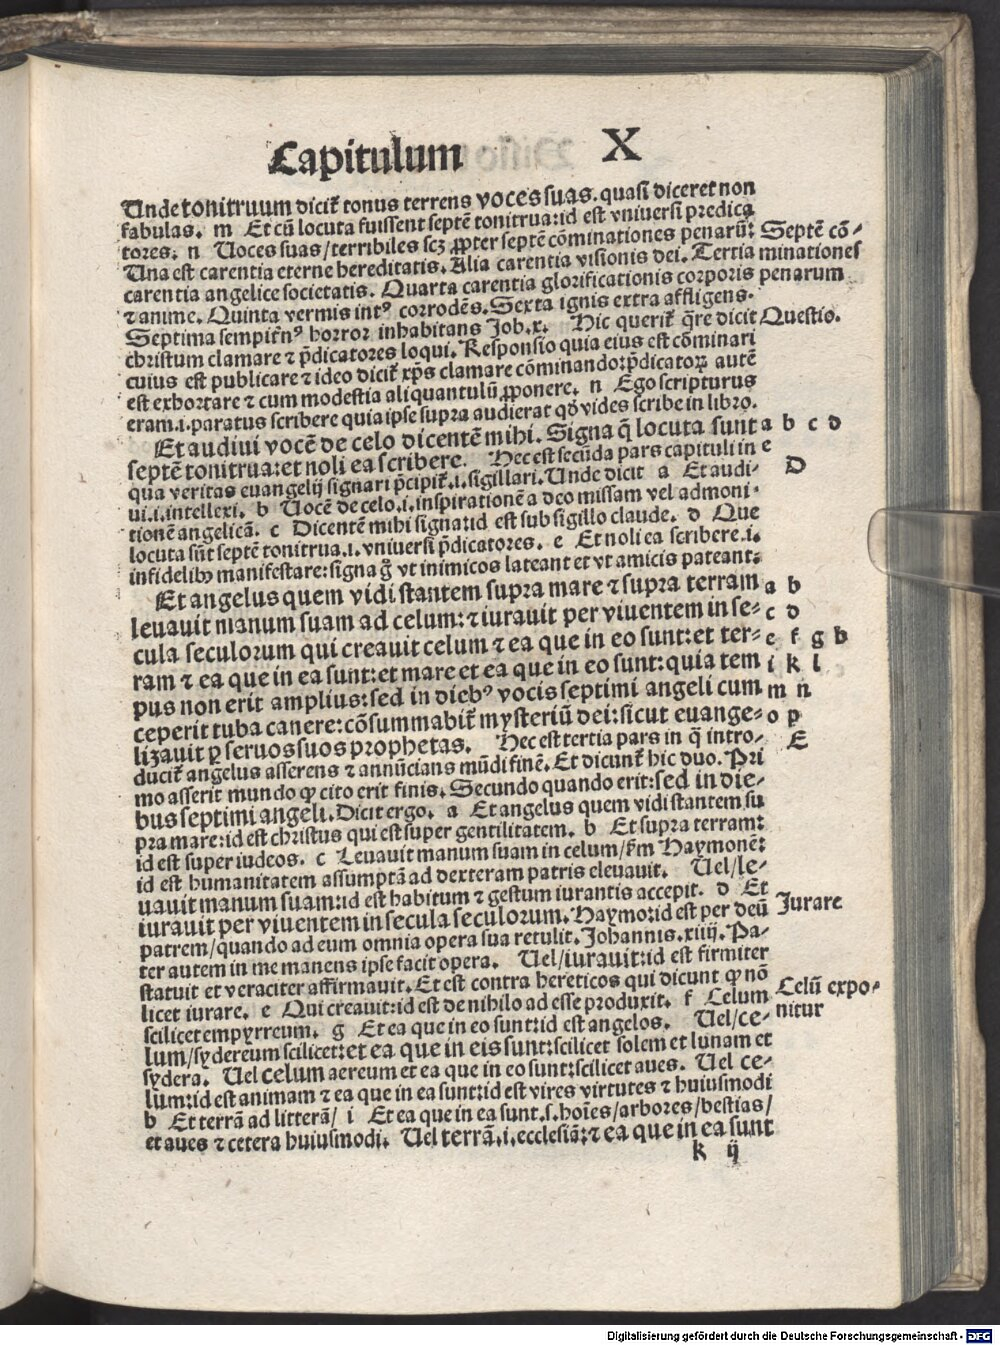 Capitulum X
Unde tonitruum dicit᷑ tonus terrens voces suas. quasi diceret non
fabulas. m Et cū locuta fuissent septē tonitrua: id est vniuersi predica
tores: n Uoces suas/terribiles scꝫ ꝓpter septē cōminationes penarū: Septē cō-
Una est carentia eterne hereditatis. Alia carentia visionis dei. Tertia minationes
carentia angelice societatis. Quarta carentia glorificationis corporis penarum
⁊ anime. Quinta vermis intꝰ corrodēs. Sexta ignis extra affligens.
Septima sempit᷑nꝰ horror inhabitans Job.x. Hic querit᷑ q̄re dicit Questio.
christum clamare ⁊ p̄dicatores loqui. Responsio quia eius est cōminari
cuius est publicare ⁊ ideo dicit᷑ xp̄s clamare cōminando: p̄dicatoꝝ autē
est exhortare ⁊ cum modestia aliquantulū ꝓponere. n Ego scripturus
eram.i.paratus scribere quia ipse supra audierat qd̄ vides scribe in libro.
Et audiui vocē de celo dicentē mihi. Signa q̄ locuta sunt a b c d
septē tonitrua: et noli ea scribere. Hec est secūda pars capituli in e
qua veritas euangelij signari p̄cipit᷑.i.sigillari. Unde dicit a Et audi- D
ui.i.intellexi. b Uocē de celo.i.inspirationē a deo missam vel admoni-
tionē angelicā. c Dicentē mihi signa: id est sub sigillo claude. d Que
locuta sūt septē tonitrua.i.vniuersi p̄dicatores. e Et noli ea scribere.i.
infidelibꝰ manifestare: signa g̊ vt inimicos lateant et vt amicis pateant:
Et angelus quem vidi stantem supra mare ⁊ supra terram a b
leuauit manum suam ad celum: ⁊ iurauit per viuentem in se- c d
cula seculorum qui creauit celum ⁊ ea que in eo sunt: et ter- e f g h
ram ⁊ ea que in ea sunt: et mare et ea que in eo sunt: quia tem i k l
pus non erit amplius: sed in diebꝰ vocis septimi angeli cum m n
ceperit tuba canere: cōsummabit᷑ mysteriū dei: sicut euange- o p
lizauit ꝑ seruos suos prophetas. Hec est tertia pars in q̄ intro- E
ducit᷑ angelus asserens ⁊ annūcians mūdi finē. Et dicunt᷑ hic duo. Pri
mo asserit mundo ꝙ cito erit finis. Secundo quando erit: sed in die-
bus septimi angeli. Dicit ergo. a Et angelus quem vidi stantem su
pra mare: id est christus qui est super gentilitatem. b Et supra terram:
id est super iudeos. c Leuauit manum suam in celum/ẜm Haymonē:
id est humanitatem assumptā ad dexteram patris eleuauit. Uel/le-
uauit manum suam: id est habitum ⁊ gestum iurantis accepit. d Et
iurauit per viuentem in secula seculorum. Haymo: id est per deū Jurare
patrem/quando ad eum omnia opera sua retulit. Johannis.xiiij. Pa-
ter autem in me manens ipse facit opera. Uel/iurauit: id est firmiter
statuit et veraciter affirmauit. Et est contra hereticos qui dicunt ꝙ nō
licet iurare. e Qui creauit: id est de nihilo ad esse produxit. f Celum Celū expo-
scilicet empyrreum. g Et ea que in eo sunt: id est angelos. Uel/ce- nitur
lum/sydereum scilicet: et ea que in eis sunt: scilicet solem et lunam et
sydera. Uel celum aereum et ea que in eo sunt: scilicet aues. Uel ce-
lum: id est animam ⁊ ea que in ea sunt: id est vires virtutes ⁊ huiusmodi
h Et terrā ad litterā/ i Et ea que in ea sunt.s.hoīes/arbores/bestias/
et aues ⁊ cetera huiusmodi. Uel terrā.i.ecclesiā: ⁊ ea que in ea sunt
k ij
Digitalisierung gefördert durch die Deutsche Forschungsgemeinschaft - DFG